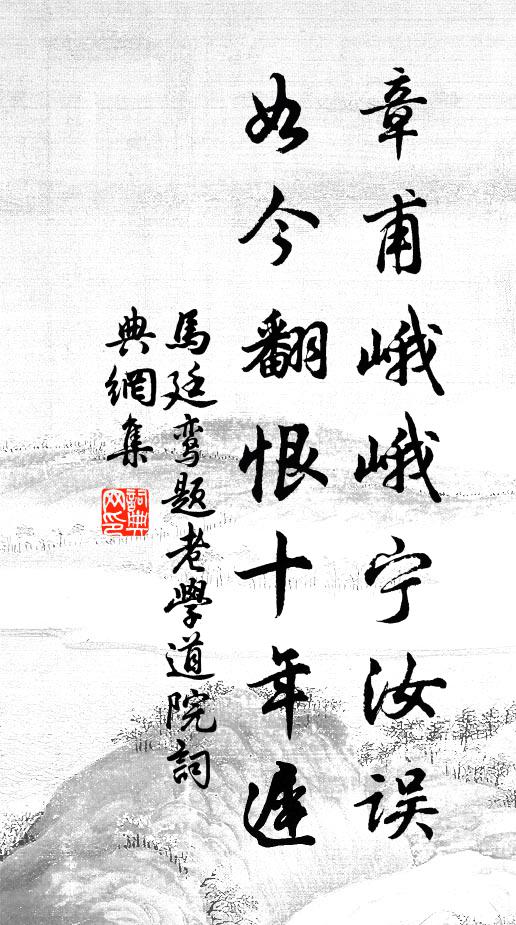 章甫峨峨宁汝误
如今翻恨十年遲
馬廷鸾题老學道院詞
典網集
詞典网印